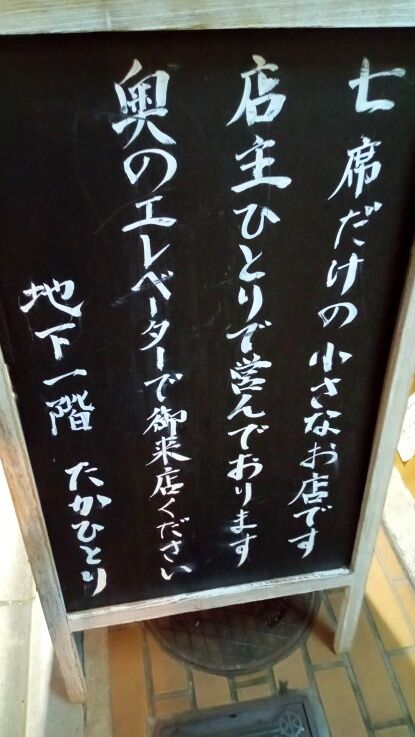 七席だけの小さなお店です
店主ひとりで営んでおります
奥のエレベーターで御来店ください
地下一階 たかひとり